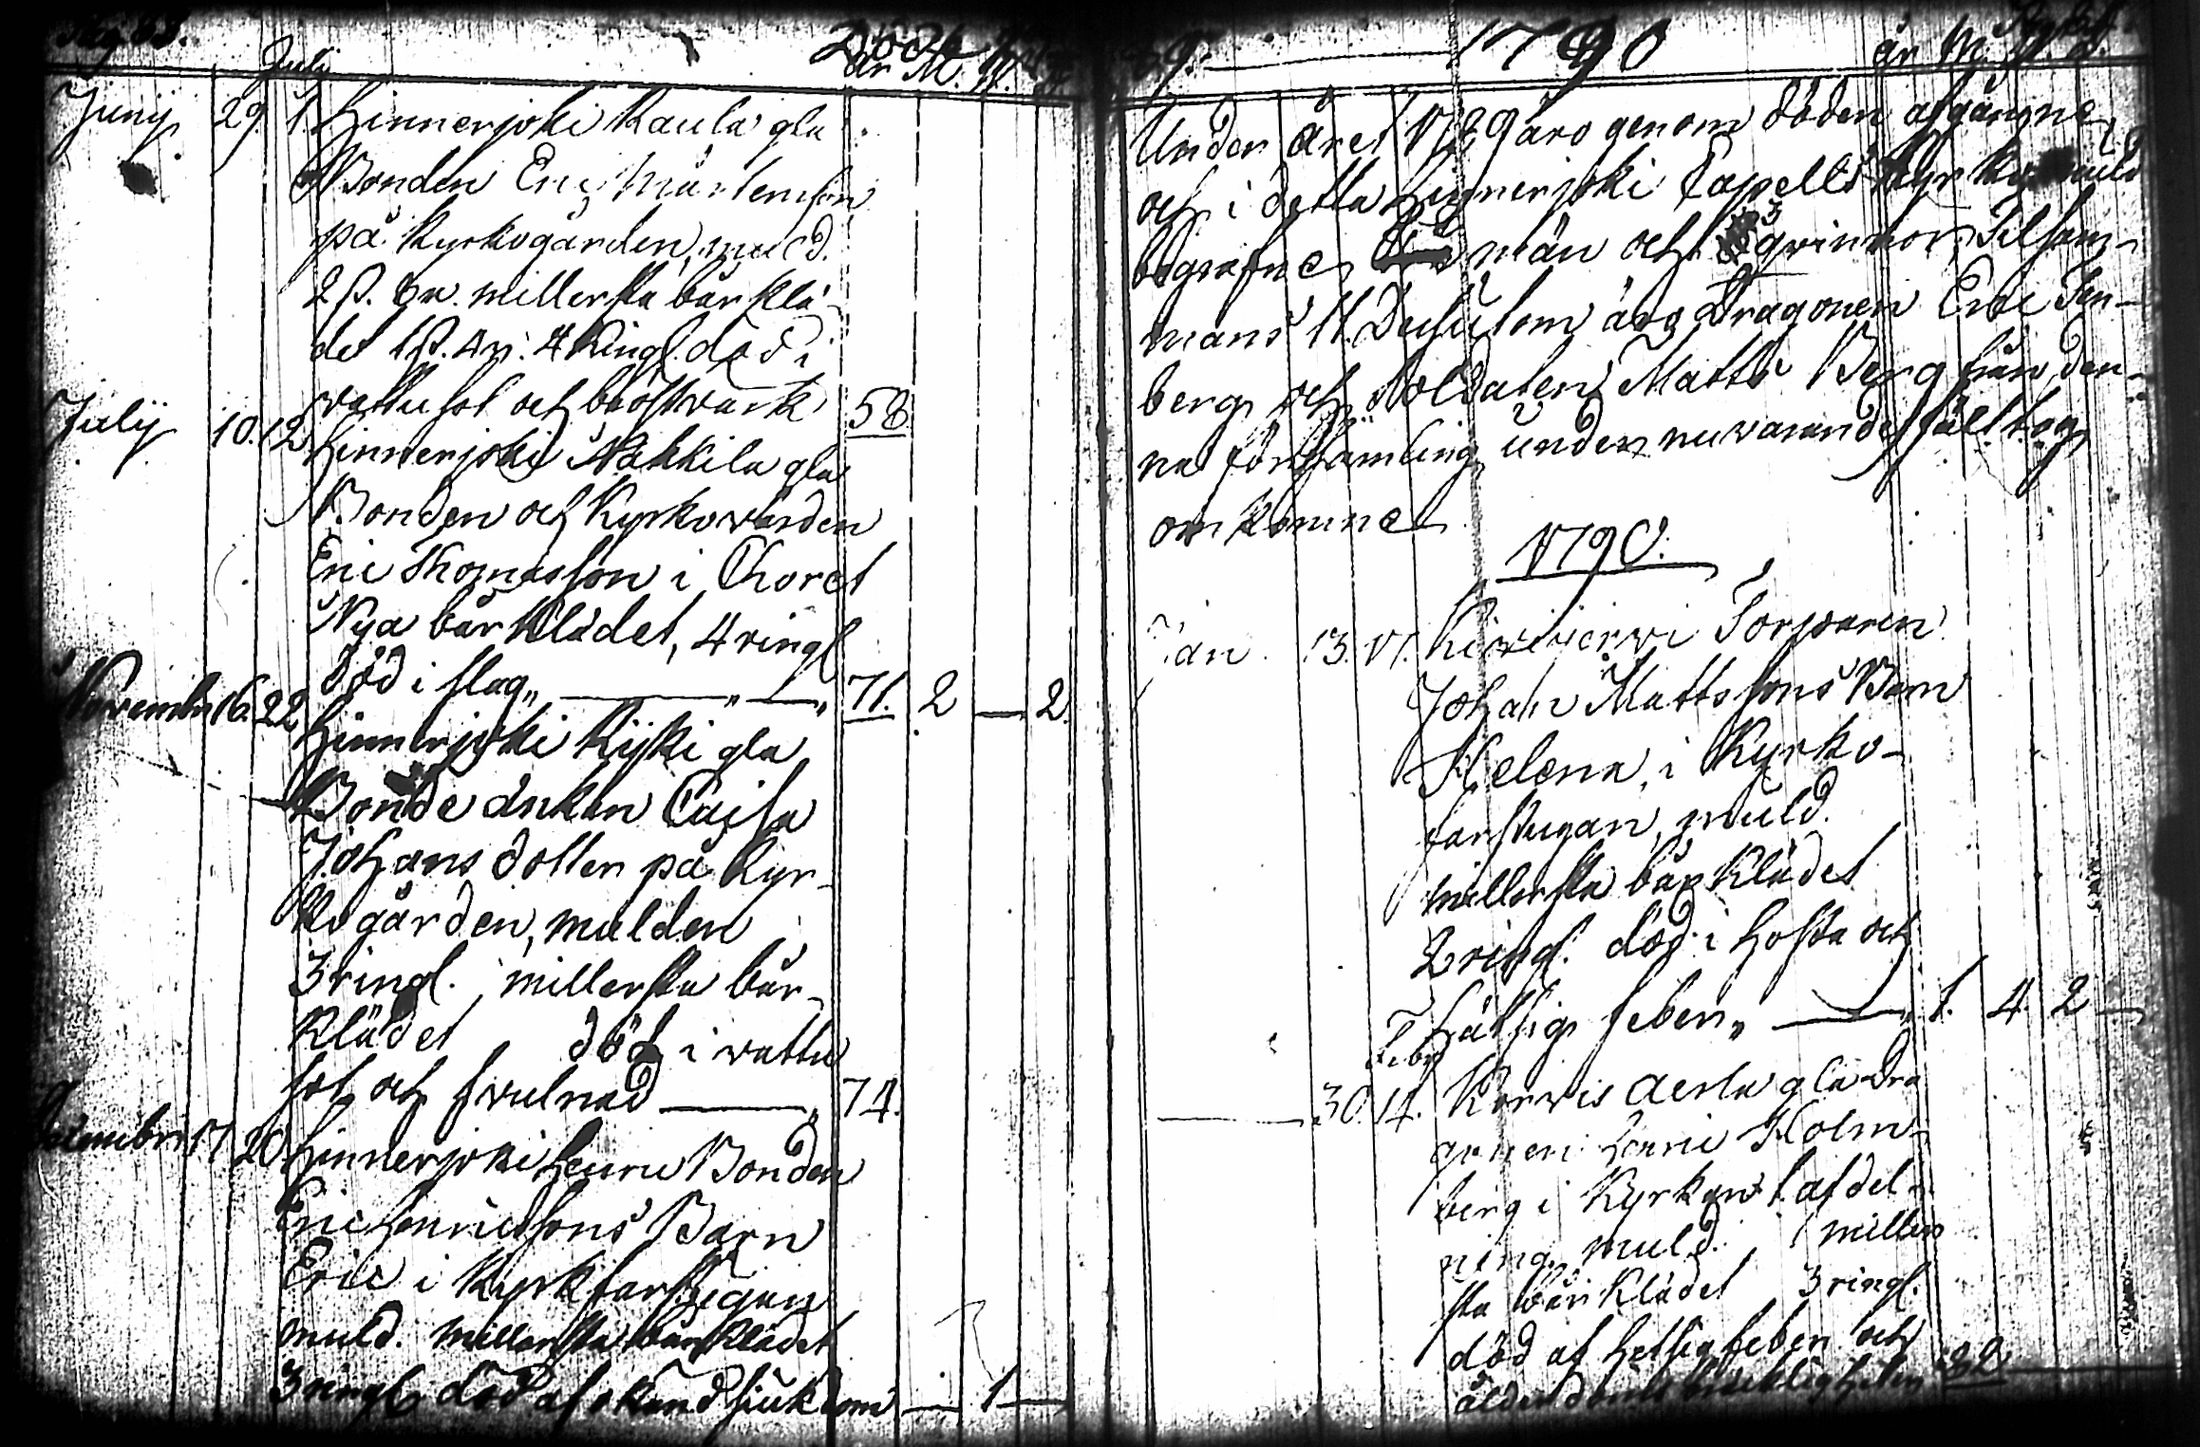 July
år M.
Junij 29 1. Hinnerjoki Kaula gla
Bonden Eric Mårtenson
på Kyrkogården, muld.
2 s. 8 r. millersta bårklä-
det 1 s. 4 r. 4 Ringl. död i
vattusot och bröstvärk 58
Julij 10. 12 Hinnerjoki Näkkilä gla
Bonden och Kyrkovärden
Eric Thomasson i Choret
Nya bårklädet, 4 ringl
död i slag„ — „ — „ 71. 2 — 2.
Novembr 16. 22 Hinnerjoki Kijki gla
Bonde änkan Caisa
Johans dotter på Kyr-
kogården, mulden
3 ringl. millersta bår-
klädet död i vattu
sot och svulnad — „ 74.
Decembr 17 20 Hinnerjoki Heuru Bonden
Eric Henricssons Barn
Eric i Kyrkfarstugan
muld. millersta bårklädet
3 ringl död af okänd siukdom — 1 —
1790
år M.
Under året 1789 äro genom döden afgångne
och i detta Hinnerjoki Capells Kyrkomuld
begrafne män och 3 qvinnor Tilsam-
mans 11. Dessutom äro Dragonen Eric
berg och soldaten Matts Berg från den-
na församling under nuvarande fälttog
omkomne
1790.
Jan. 13. 17. Torparen
Johan Mattssons Barn
Helena, i Kyrko-
farstugan, muld.
millersta bårklädet
2 ringl. död i hosta och
hätsig feber„ — „ 1. 4 2 —
Febr
— 30. 14. gla Dra
gonen Henric Holm-
berg i Kyrkans 1. afdel-
ning, muld. miller
sta bårklädet 3 ringl.
död af hetsig feber och
ålderdoms 82